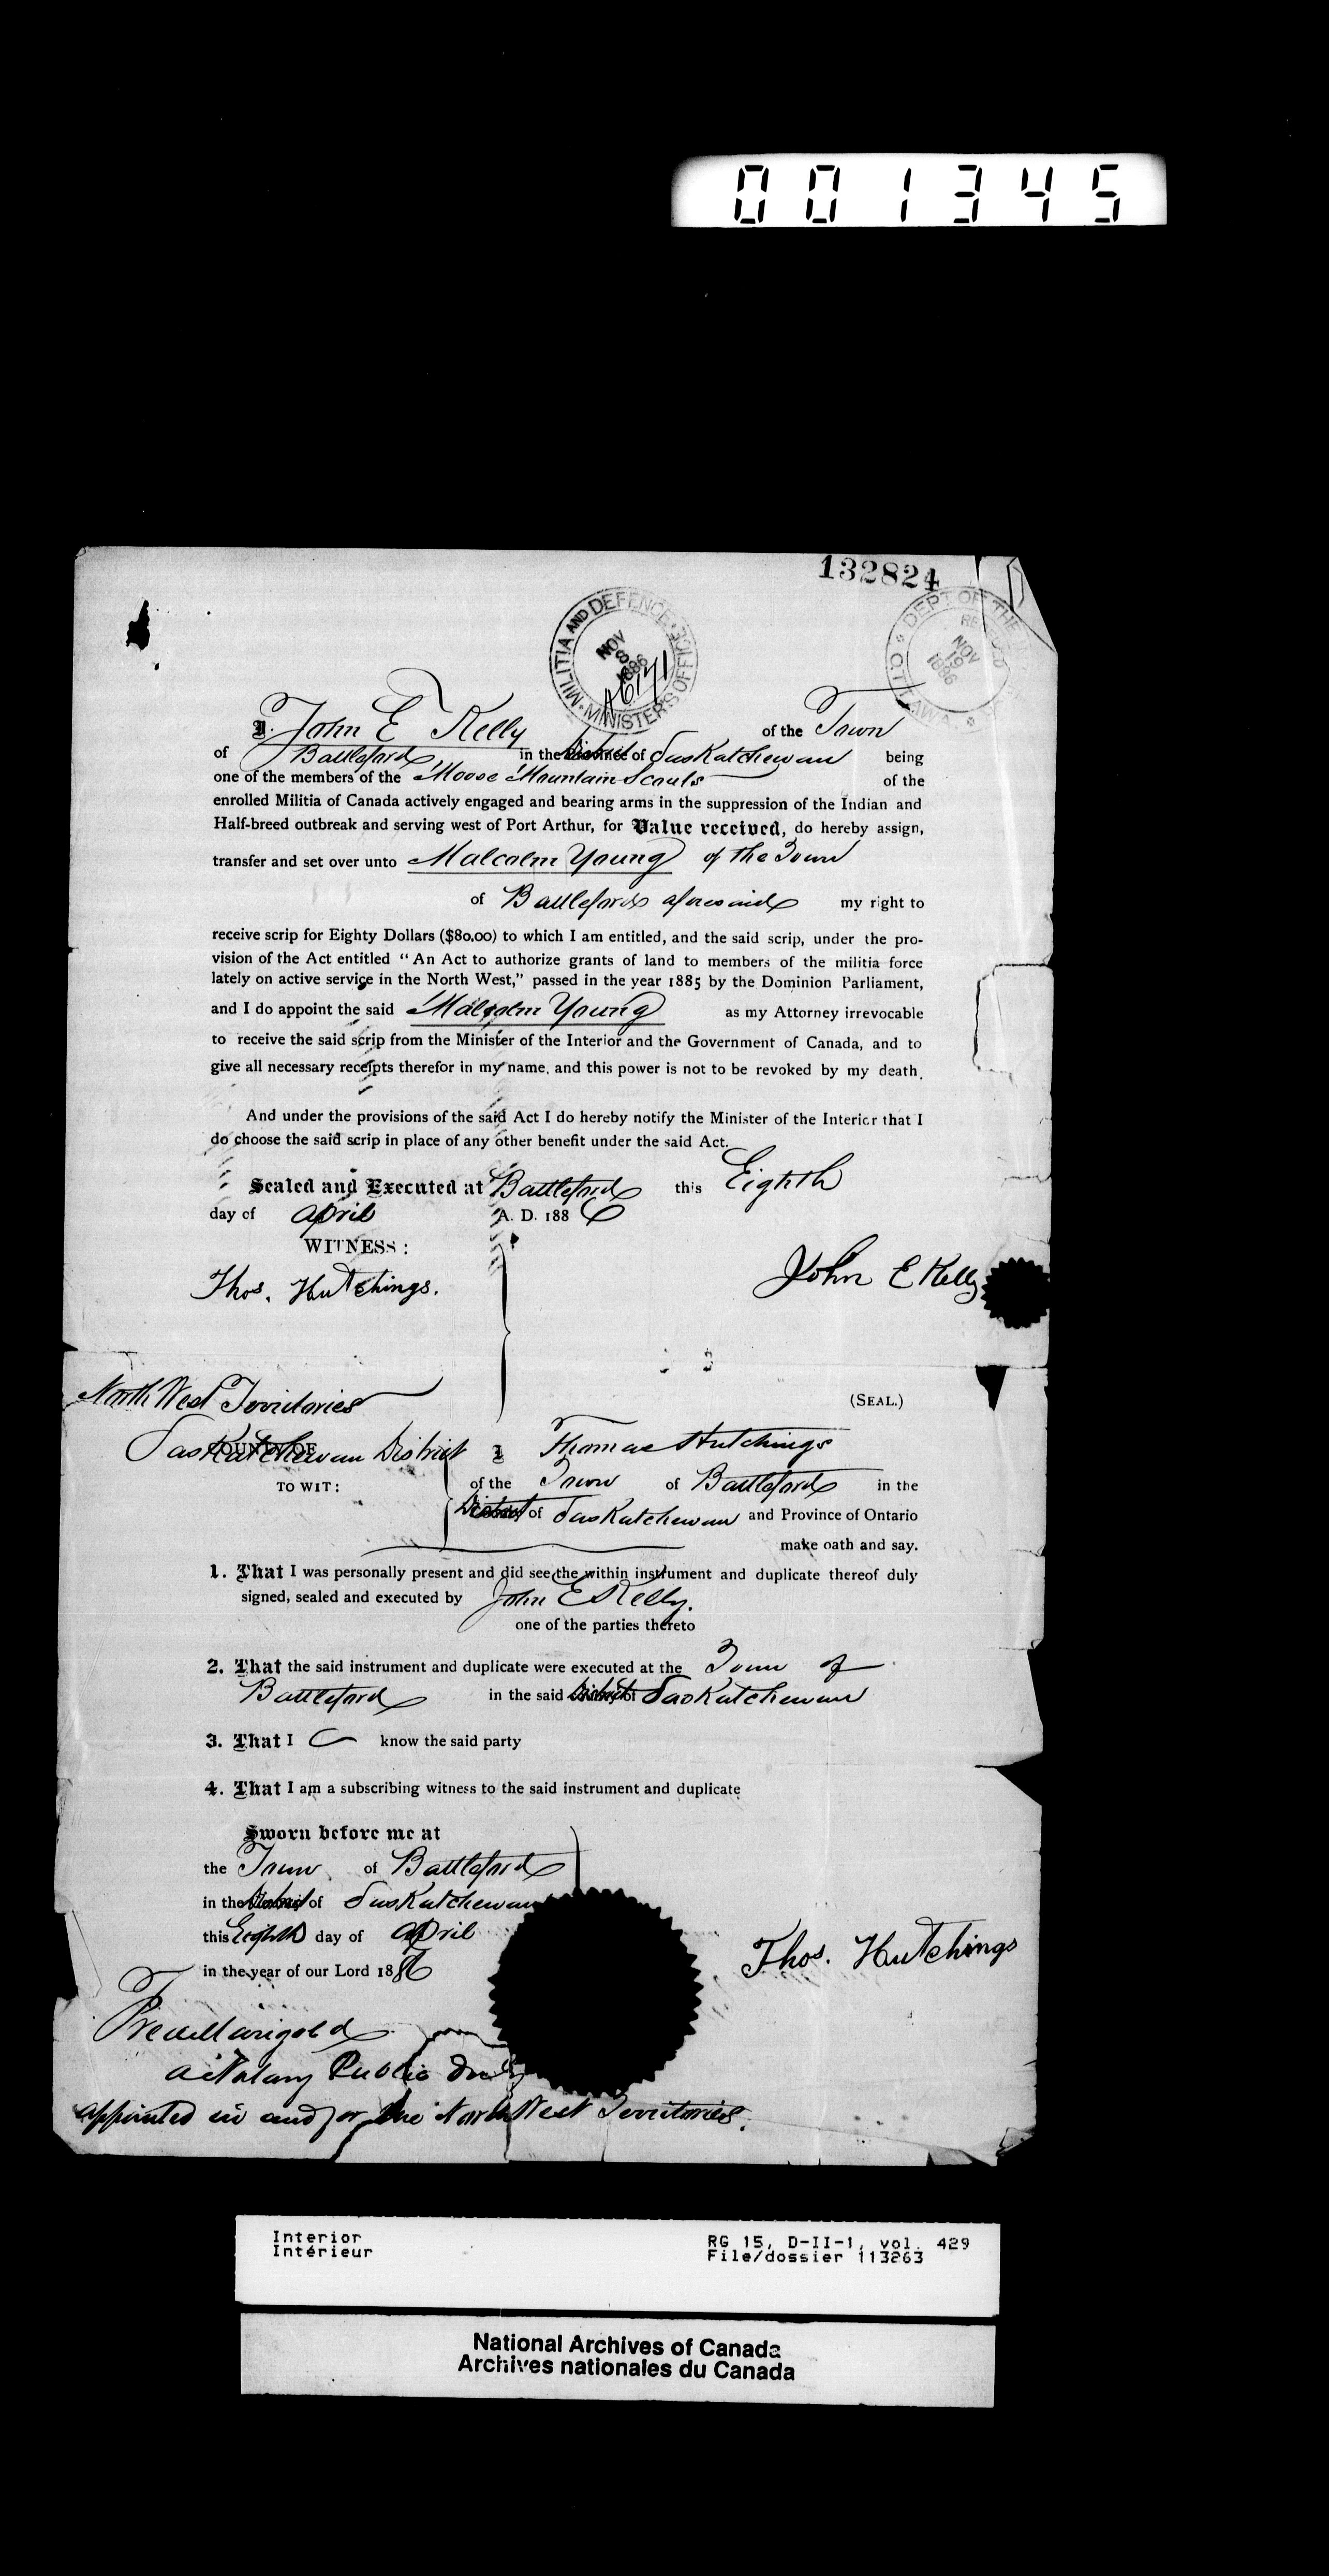 001345
132824
MILITIA AND DEFENCE MINISTER'S OFFICE
NOV 8 1886
A6171
DEPT OF THE
OTTAWA
NOV 19 1886
I. John E Kelly of the Town
of Battleford in the District of Saskatchewan being
one of the members of the Moose Mountain Scouts of the
enrolled Militia of Canada actively engaged and bearing arms in the suppression of the Indian and
Half-breed outbreak and serving west of Port Arthur, for Value received, do hereby assign,
transfer and set over unto Malcolm Young of the Town
of Battleford aforesaid my right to
receive scrip for Eighty Dollars ($80.00) to which I am entitled, and the said scrip, under the pro-
vision of the Act entitled "An Act to authorize grants of land to members of the militia force
lately on active service in the North West," passed in the year 1885 by the Dominion Parliament,
and I do appoint the said Malcolm Young as my Attorney irrevocable
to receive the said scrip from the Minister of the Interior and the Government of Canada, and to
give all necessary receipts therefor in my name, and this power is not to be revoked by my death.
And under the provisions of the said Act I do hereby notify the Minister of the Interior that I
do choose the said scrip in place of any other benefit under the said Act.
Sealed and Executed at Battleford this Eighth
day of April A. D. 1886
WITNESS:
Thos. Hutchings.
John E Kelly
North West Territories
(SEAL.)
Saskatchewan District I Thomas Hutchings
COUNTY OF
TO WIT: of the Town of Battleford in the
District of Saskatchewan and Province of Ontario
make oath and say.
1. That I was personally present and did see the within instrument and duplicate thereof duly
signed, sealed and executed by John E Kelly.
one of the parties thereto
2. That the said instrument and duplicate were executed at the Town of
Battleford in the said District of Saskatchewan
3. That I know the said party
4. That I am a subscribing witness to the said instrument and duplicate
Sworn before me at
the Town of Battleford
in the District of Saskatchewan
this Eighth day of April
in the year of our Lord 1886
Thos. Hutchings
a Notary Public duly
appointed in and for the North West Territories.
Interior
Intérieur
RG 15, D-II-1, vol. 429
File/dossier 113263
National Archives of Canada
Archives nationales du Canada